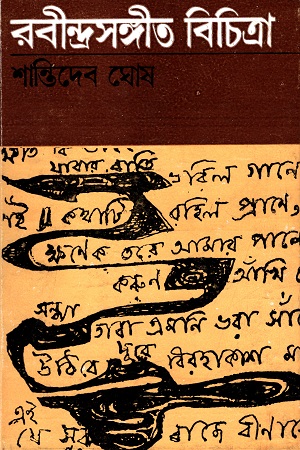 রবীন্দ্রসঙ্গীত বিচিত্রা
শান্তিদেব ঘোষ
যাবার রাতি
ভরিল গানে
কথাটি রহিল প্রাণে
ক্ষণেক তরে আমার পানে
করুণ আঁখি
সন্ধ্যা
তারা এমনি ভরা সাঁ
উঠিবে দূরে বিরহাকাশ মা
এই
যে সুর বাজে বীণাতে